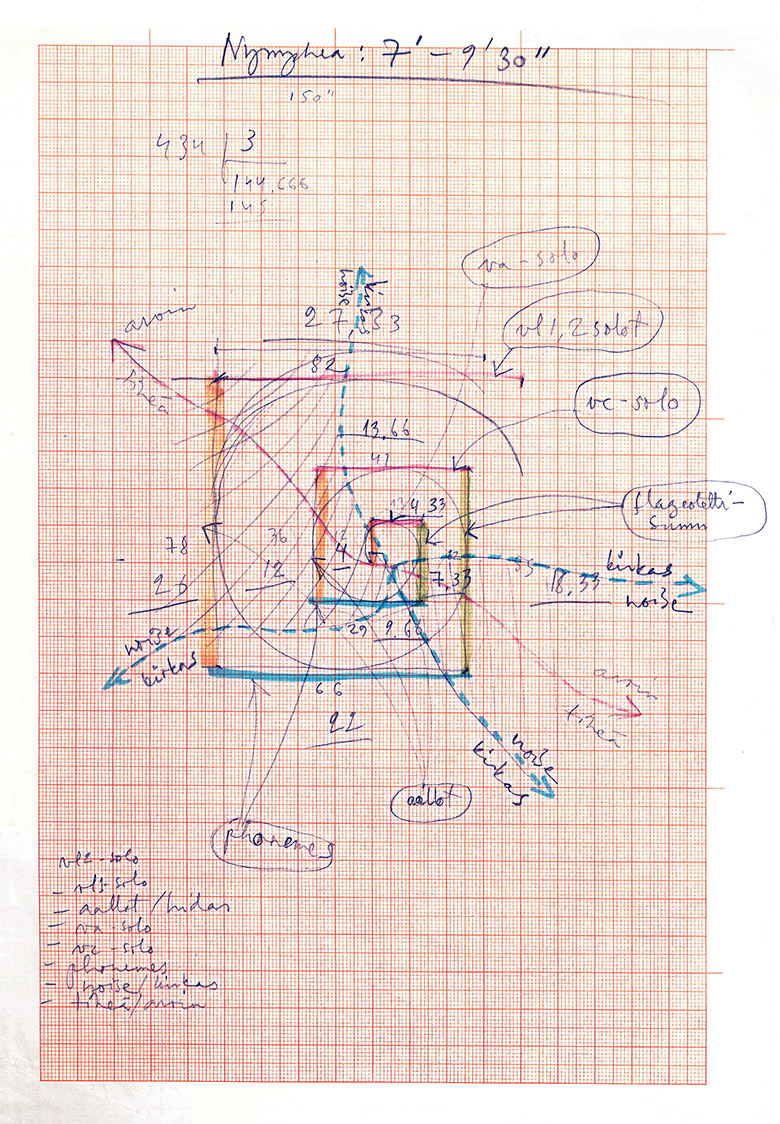 Nymphea : 7' – 9'30"
150"
434 3
144,666
145
va-solo
noise
kirkas
27,33
avoin
tiheä
vl 1,2 solot
82
vc-solo
13,66
41
flageoletti-
4,33
78
36
12
4
26
7,33
55
18,33
kirkas
noise
noise
kirkas
29
9,66
avoin
tiheä
66
22
noise
kirkas
aallot
phonemes
vl2-solo
– vl1-solo
– aallot/hidas
– va-solo
– vc-solo
– phonemes
– noise/kirkas
– tiheä/avoin